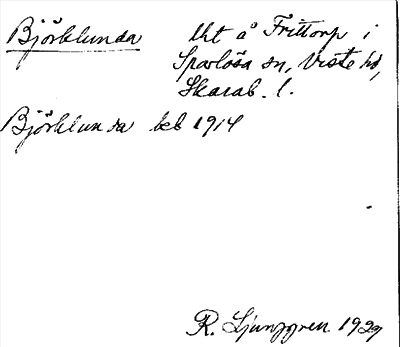 Björklunda Lht å Frittorp i
Sparlösa sn, Viste hd,
Skarab. l.
Björklunda beb 1914
R. Ljunggren 1929